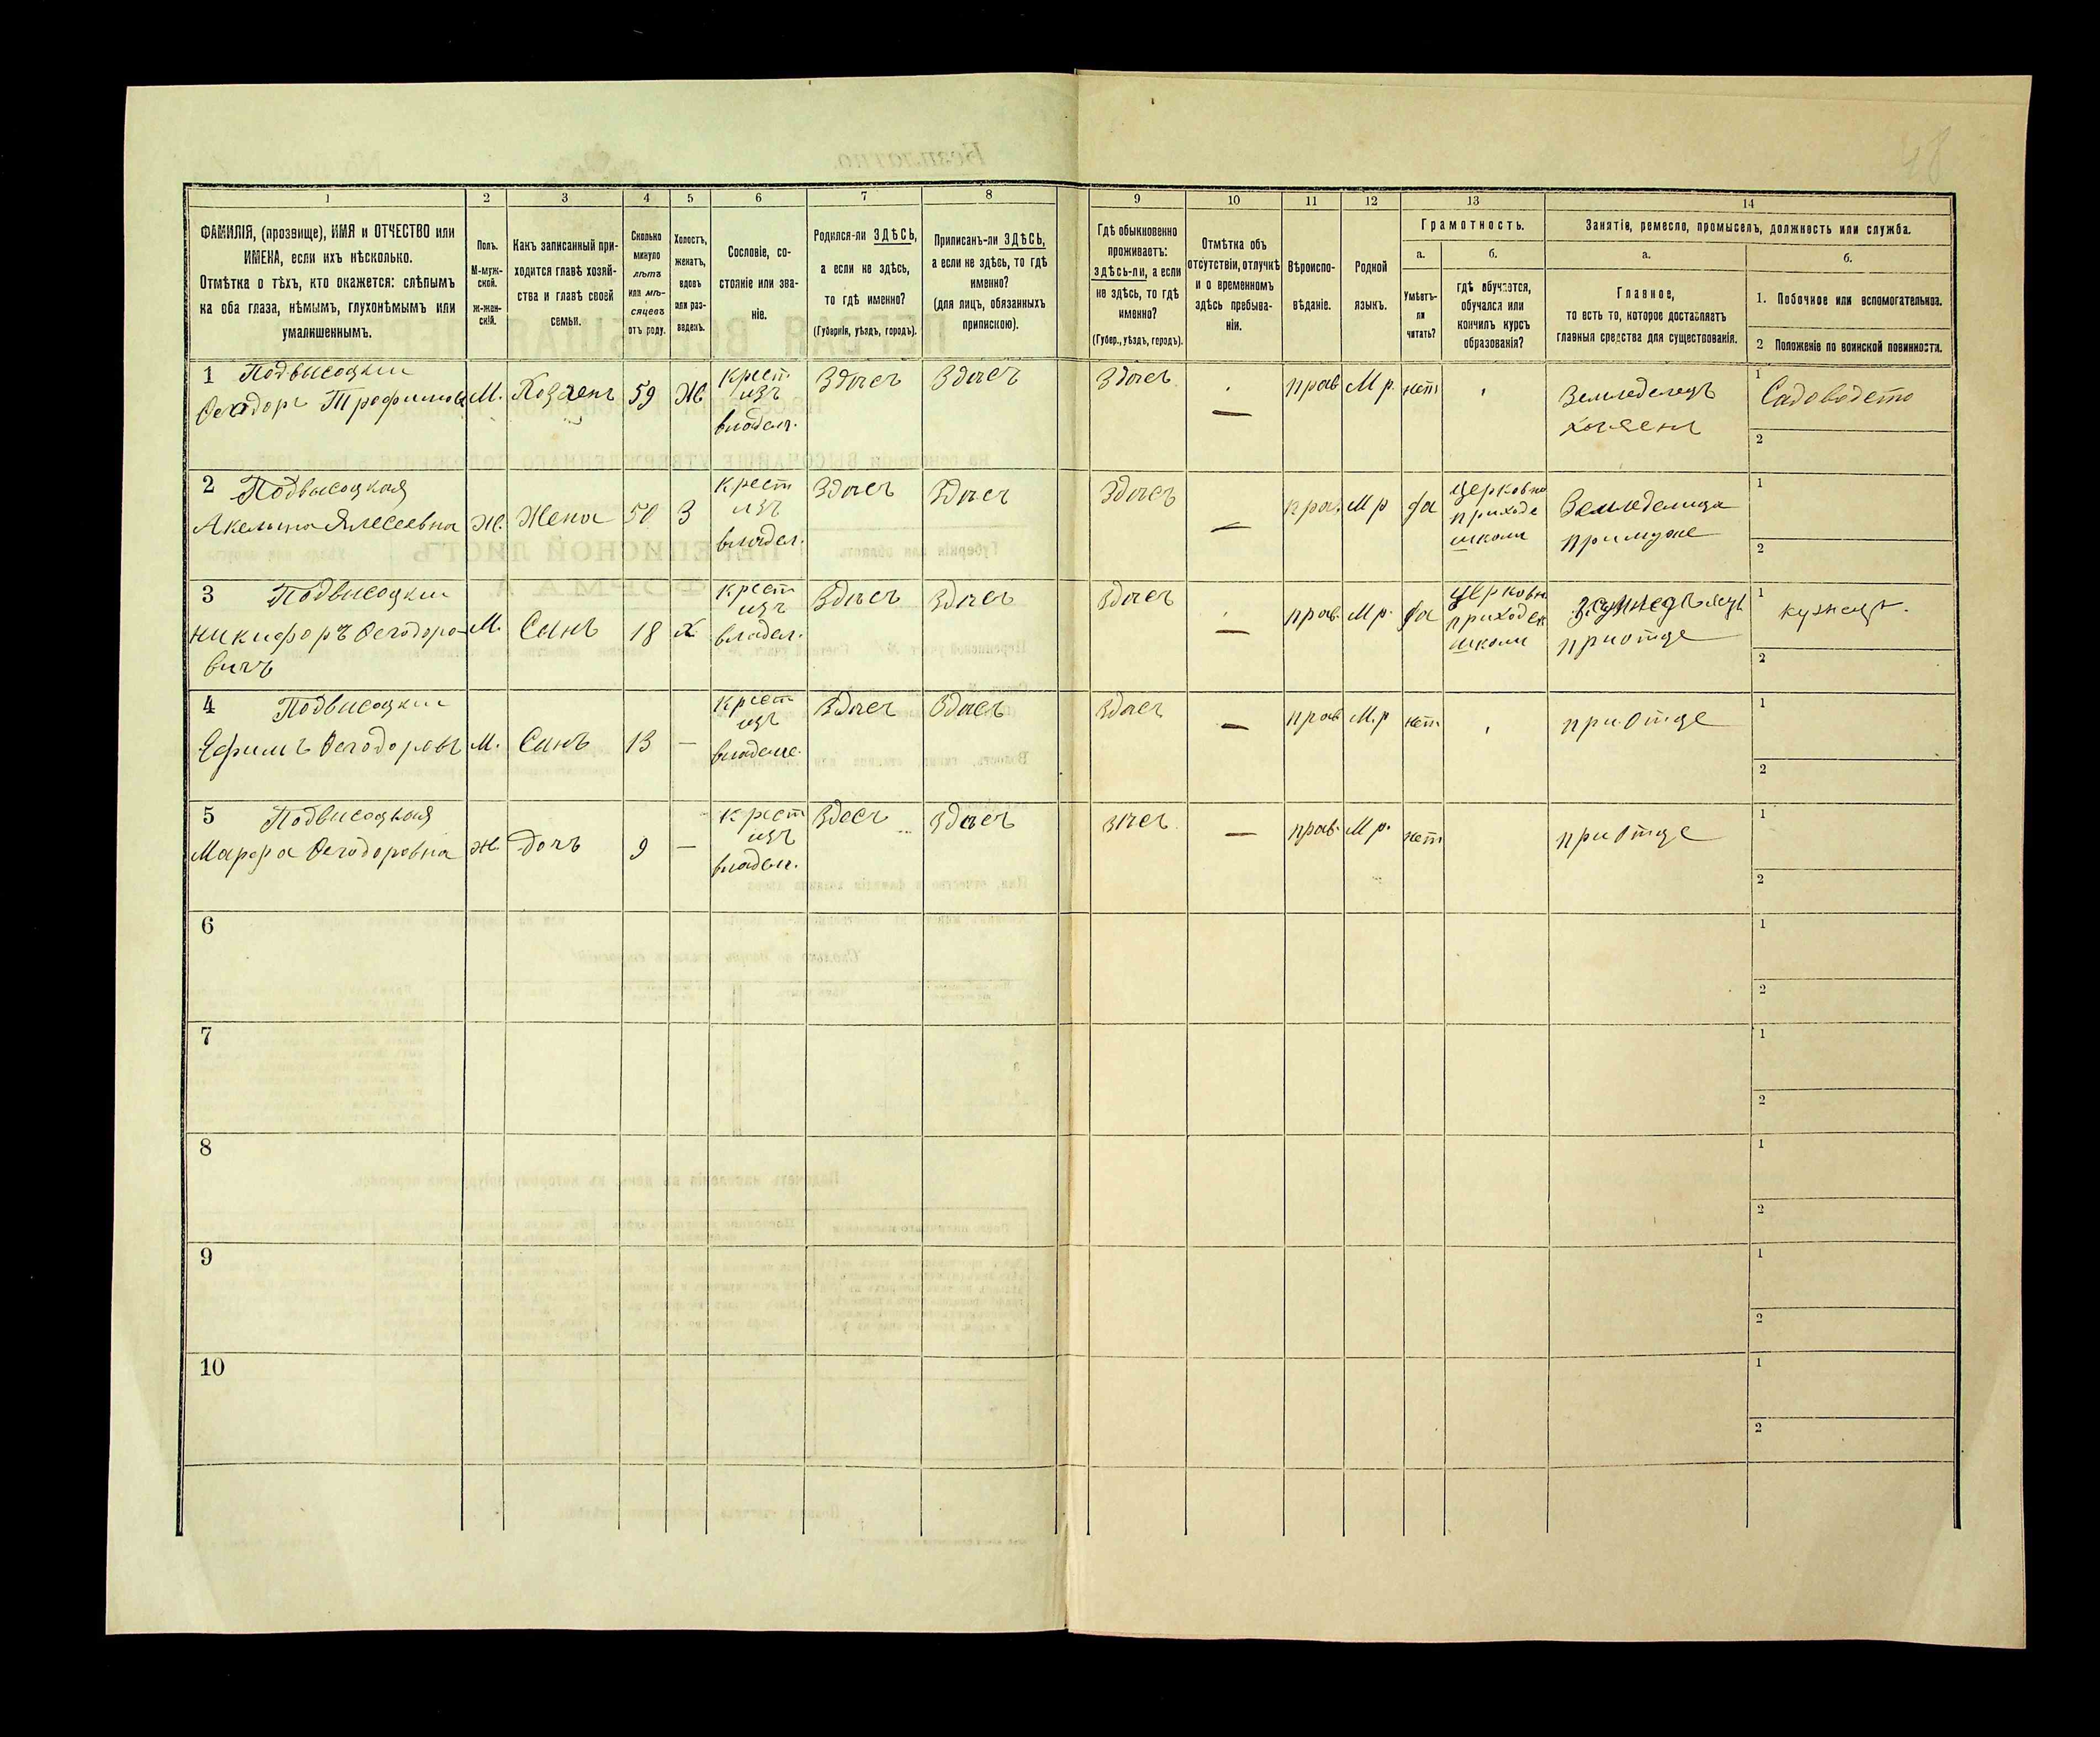 18
1 2 3 4 5 6 7 8 9 10 11 12 13 14
ФАМИЛІЯ, (прозвище), ИМЯ и ОТЧЕСТВО или
ИМЕНА, если ихъ нѣсколько.
Отмѣтка о тѣхъ, кто окажется: слѣпымъ
на оба глаза, нѣмымъ, глухонѣмымъ или
умалишеннымъ.
Полъ.
М-муж-
ской.
Ж-жен-
скій.
Какъ записанный при-
ходится главѣ хозяй-
ства и главѣ своей
семьи.
Сколько
минуло
лѣтъ
или мѣ-
сяцевъ
отъ роду.
Холостъ,
женатъ,
вдовъ
или раз-
веденъ.
Сословіе, со-
стояніе или зва-
ніе.
Родился-ли ЗДѢСЬ,
а если не здѣсь,
то гдѣ именно?
(Губернія, уѣздъ, городъ).
Приписанъ-ли ЗДѢСЬ,
а если не здѣсь, то гдѣ
именно?
(для лицъ, обязанныхъ
припискою).
Гдѣ обыкновенно
проживаетъ:
здѣсь-ли, а если
не здѣсь, то гдѣ
именно?
(Губер., уѣздъ, городъ).
Отмѣтка объ
отсутствіи, отлучкѣ
и о временномъ
здѣсь пребыва-
ніи.
Вѣроиспо-
вѣданіе.
Родной
языкъ.
Грамотность.
а.
Умѣетъ-
ли
читать?
б.
гдѣ обучается,
обучался или
кончилъ курсъ
образованія?
Занятіе, ремесло, промыселъ, должность или служба.
а.
Главное,
то есть то, которое доставляетъ
главныя средства для существованія.
б.
1. Побочное или вспомогательное.
2 Положеніе по воинской повинности.
1 Подвысоцкии
Феодоръ Трофимовъ М. Хозяенъ 59 Ж.
крест
изъ
владел.
Здаеъ Здаеъ Здаеъ — прав М р. нет
Земледелецъ
хозяенъ
1 Садоводство
2
2 Подвысоцкая
Акелина Алесеевна Ж. Жена 50 З
крест
изъ
владел.
Здаеъ Здаеъ Здаеъ — прав. М р да
церковно
приходе
школи
Земледелица
примуже
1
2
3 Подвисоцкии
Никифоръ Феодоро-
вичъ
М. Синъ 18 х
крест
изъ
владел.
Здаеъ Здаеъ Здаеъ — прав. М р. да
церковн
приходск
школи
приотце
1 кузнецъ.
2
4 Подвисоцкии
Ефимъ Феодоровъ М. Синъ 13 —
крест
изъ
владеле.
Здаеъ Здаеъ Здаеъ — прав М.р нет. приотце
1
2
5 Подвисоцкая
Марфа Феодоровна ж. дочъ 9 —
крест
изъ
владел.
Здаеъ Здаеъ — прав. М р. нет приотце
1
2
6
1
2
7
1
2
8
1
2
9
1
2
10
1
2